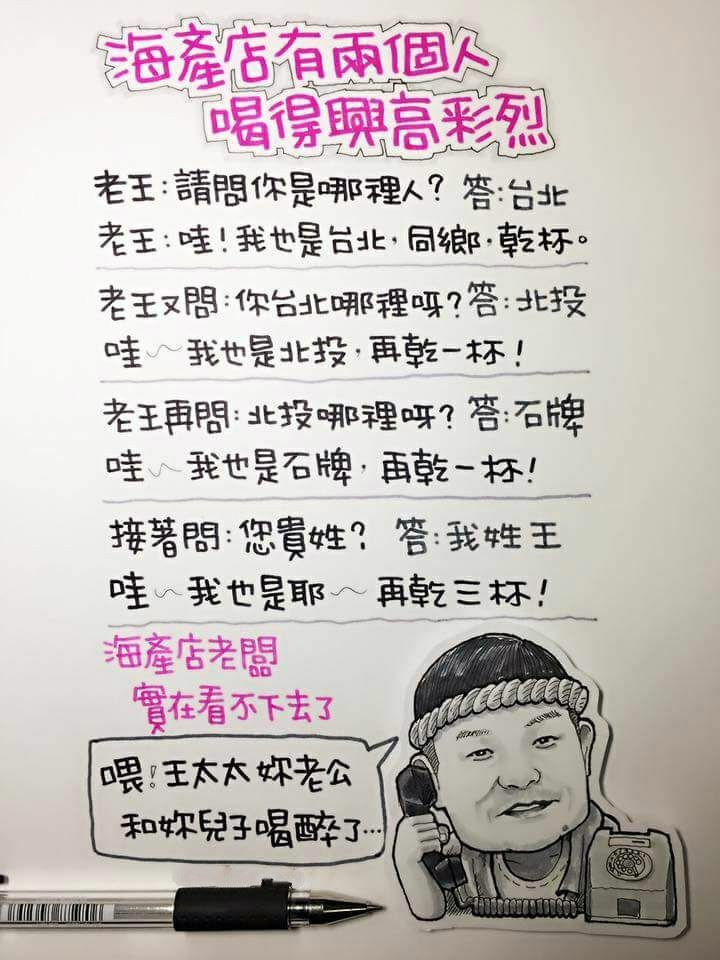 海產店有兩個人
喝得興高彩烈
老王：請問你是哪裡人？ 答：台北
老王：哇！我也是台北，同鄉，乾杯。
老王又問：你台北哪裡呀？答：北投
哇～我也是北投，再乾一杯！
老王再問：北投哪裡呀？ 答：石牌
哇～我也是石牌，再乾一杯！
接著問：您貴姓？ 答：我姓王
哇～我也是耶～再乾三杯！
海產店老闆
實在看不下去了
喂！王太太妳老公
和妳兒子喝醉了…